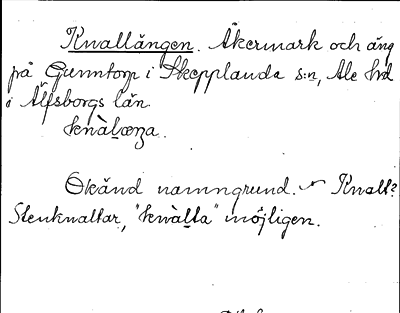 Knallängen. Åkermark och äng
på Gunntorp i Skepplanda s:n, Ale hd
i Älfsborgs län.
Okänd namngrund. Knall?
Stenknallar, "knal̲la" möjligen.